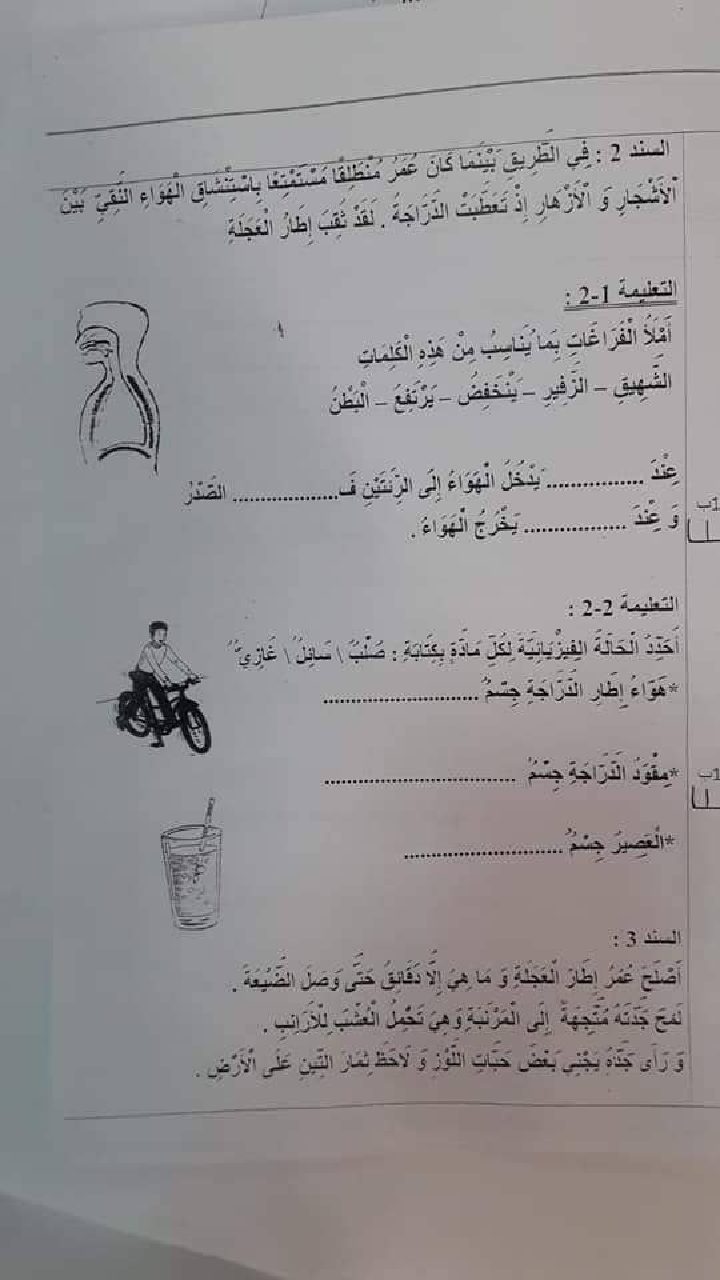 السند 2 : فِي الطَّرِيقِ بَيْنَمَا كَانَ عُمَرُ مُنْطَلِقًا مُسْتَمْتِعًا بِاسْتِنْشَاقِ الْهَوَاءِ النَّقِيِّ بَيْنَ
الْأَشْجَارِ وَ الْأَزْهَارِ إِذْ تَعَطَّبَتْ الدَّرَّاجَةُ . لَقَدْ ثُقِبَ إِطَارُ الْعَجَلَةِ
التعليمة 1-2 :
أَمْلَأُ الْفَرَاغَاتِ بِمَا يُنَاسِبُ مِنْ هَذِهِ الْكَلِمَاتِ
الشَّهِيقِ – الزَّفِيرِ – يَنْخَفِضُ – يَرْتَفِعُ – الْبَطْنُ
عِنْدَ ................ يَدْخُلُ الْهَوَاءُ إِلَى الرِّئَتَيْنِ فَـ.................. الصَّدْرُ
وَ عِنْدَ ................. يَخْرُجُ الْهَوَاءُ .
1ب
التعليمة 2-2 :
أُحَدِّدُ الْحَالَةَ الفِيزْيَائِيَّةَ لِكُلِّ مَادَّةٍ بِكِتَابَةِ : صُلْبٌ \ سَائِلٌ \ غَازِيٌّ
*هَوَاءُ إِطَارِ الدَّرَّاجَةِ جِسْمٌ ..........................
*مِقْوَدُ الدَّرَّاجَةِ جِسْمٌ ................................
1ب
*الْعَصِيرُ جِسْمٌ ...........................
السند 3 :
أَصْلَحَ عُمَرُ إِطَارَ الْعَجَلَةِ وَ مَا هِيَ إِلَّا دَقَائِقُ حَتَّى وَصَلَ الضَّيْعَةَ .
لَمَحَ جَدَّتَهُ مُتَّجِهَةً إِلَى الْمَرْنَبَةِ وَهِيَ تَحْمِلُ الْعُشْبَ لِلْأَرَانِبِ .
وَ رَأَى جَدَّهُ يَجْنِي بَعْضَ حَبَّاتِ اللَّوْزِ وَ لَاحَظَ ثِمَارَ التِّينِ عَلَى الْأَرْضِ .